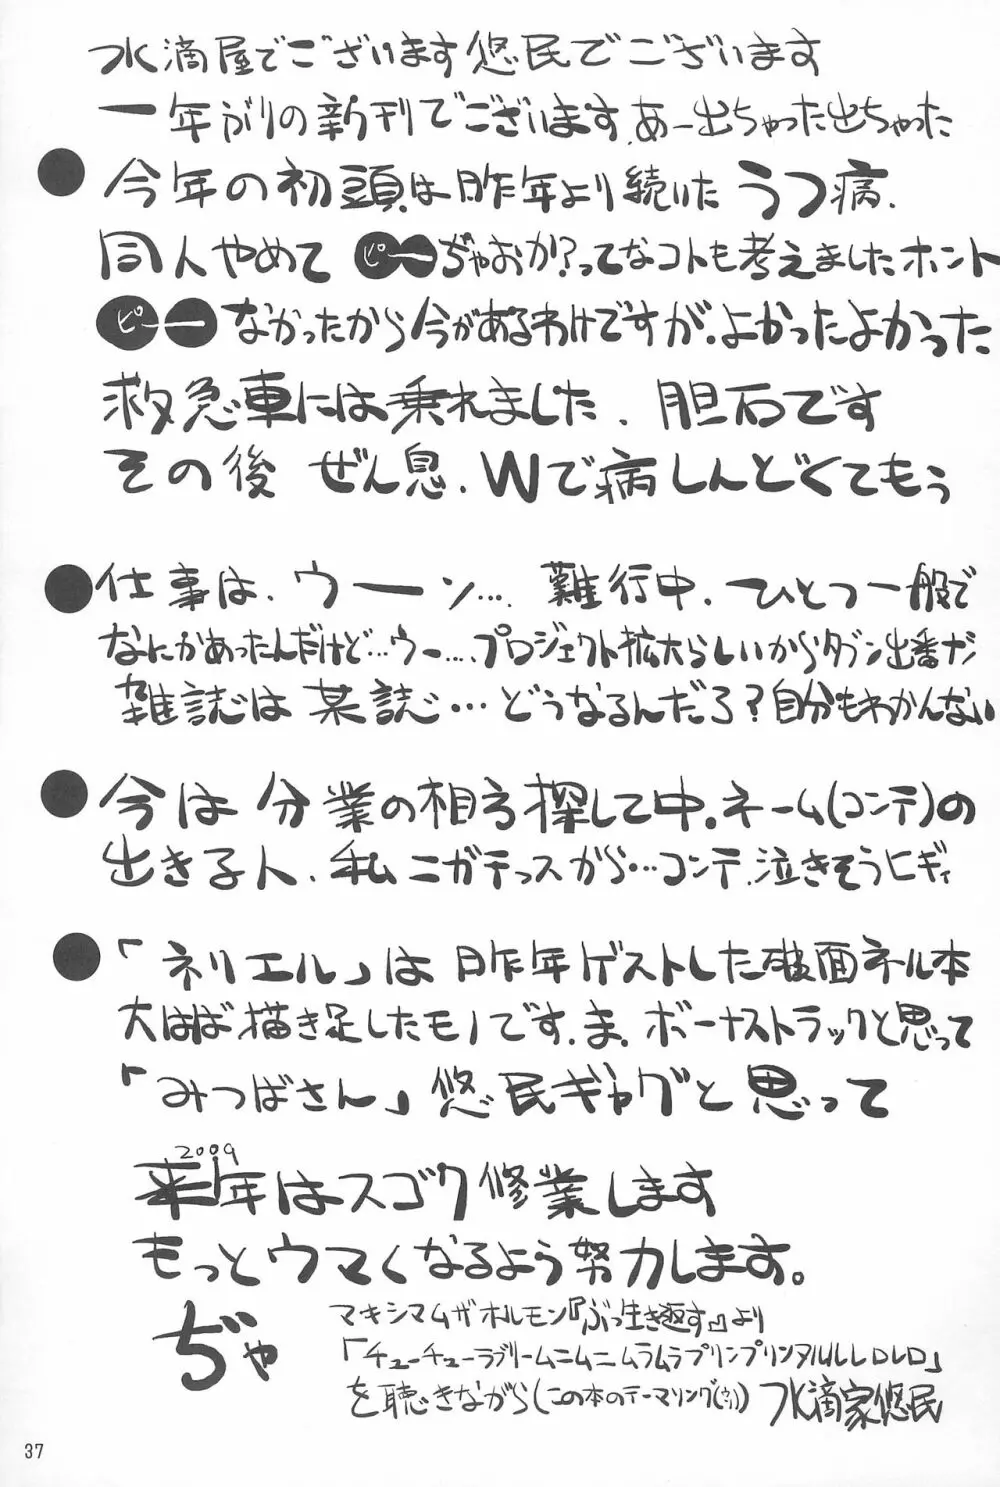 水滴屋でございます悠民でございます
一年ぶりの新刊でございます。あー出ちゃった出ちゃった
●今年の初頭は昨年より続いたうつ病、
同人やめてピーぢゃおか?ってなコトも考えましたホント
ピーなかったから今があるわけですが、よかったよかった
救急車には乗れました、胆石です
その後ぜん息、Wで病しんどくてもう
●仕事は、ウーン…、難行中、ひとつ一般で
なにかあったんだけど…ウー…、プロジェクト拡大らしいからタブン出番ナシ
雑誌は某誌…どうなるんだろ?自分もわかんない
●今は分業の相方探して中。ネーム(コンテ)の
出きる人、私ニガテっスから…コンテ、泣きそうヒギィ
●「ネリエル」は昨年ゲストした破面ネル本
大はば描き足したモノです、ま、ボーナストラックと思って
「みつばさん」悠民ギャグと思って
2009
来年はスゴク修業します
もっとウマくなるよう努力します。
ぢゃ
マキシマムザホルモン『ぶっ生き返す』より
「チューチューラブリームニムニムラムラプリンプリンヌルルレロレロ」
を聴きながら(この本のテーマソング(ウソ))水滴家悠民
37